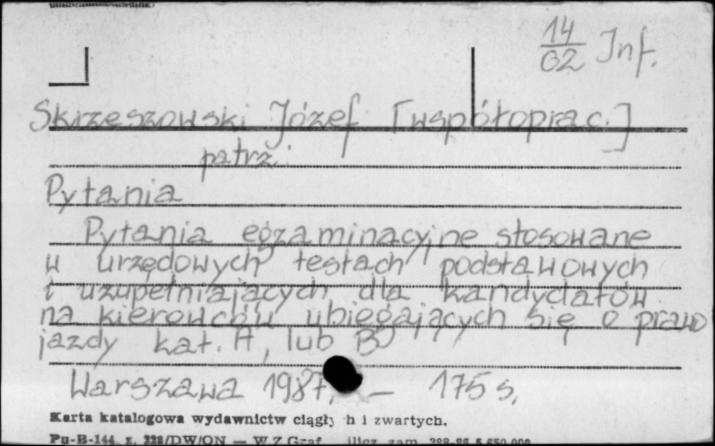 14
02 Inf.
Skrzeszowski Józef [współoprac.]
patrz:
Pytania
Pytania egzaminacyjne stosowane
w urzędowych testach podstawowych
i uzupełniających dla kandydatów
na kierowców ubiegających się o prawo
jazdy kat. A, lub B
Warszawa 1987. – 175 s.
Karta katalogowa wydawnictw ciągły h i zwartych.
Pu-B-144 z. 228/DW/ON — W.Z.Graf. zam.